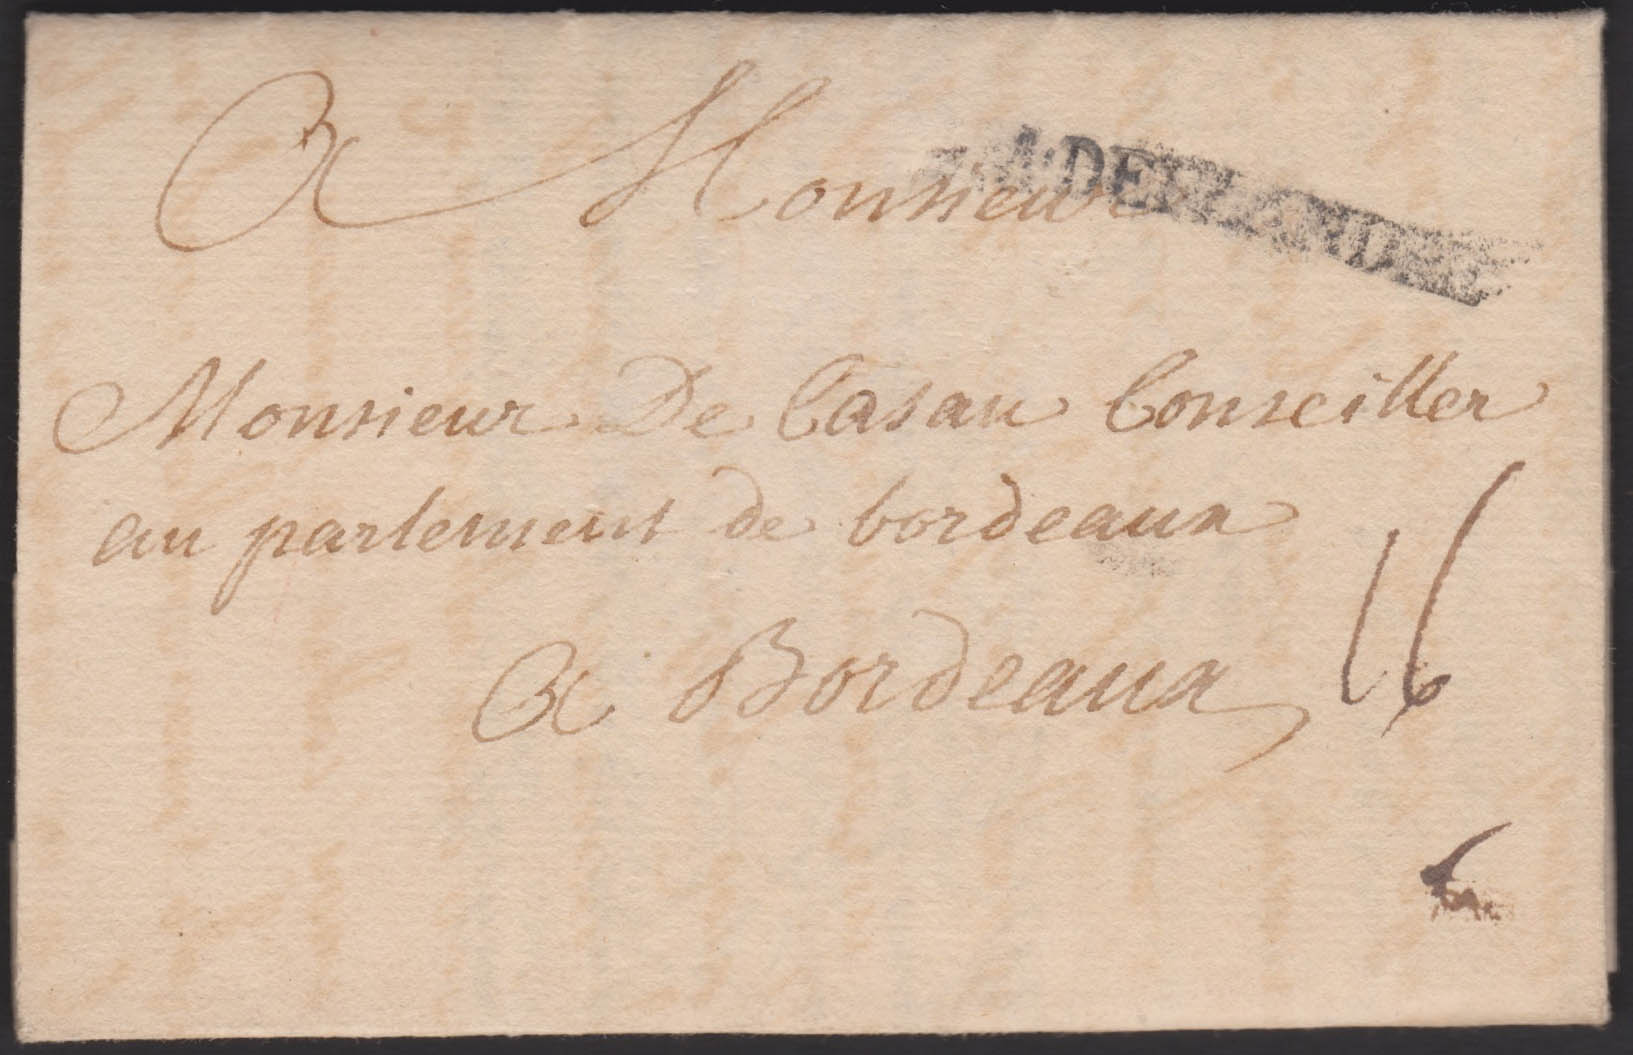 A Monsieur
Monsieur De Casau Conseiller
au parlement de bordeaux
A Bordeaux
16